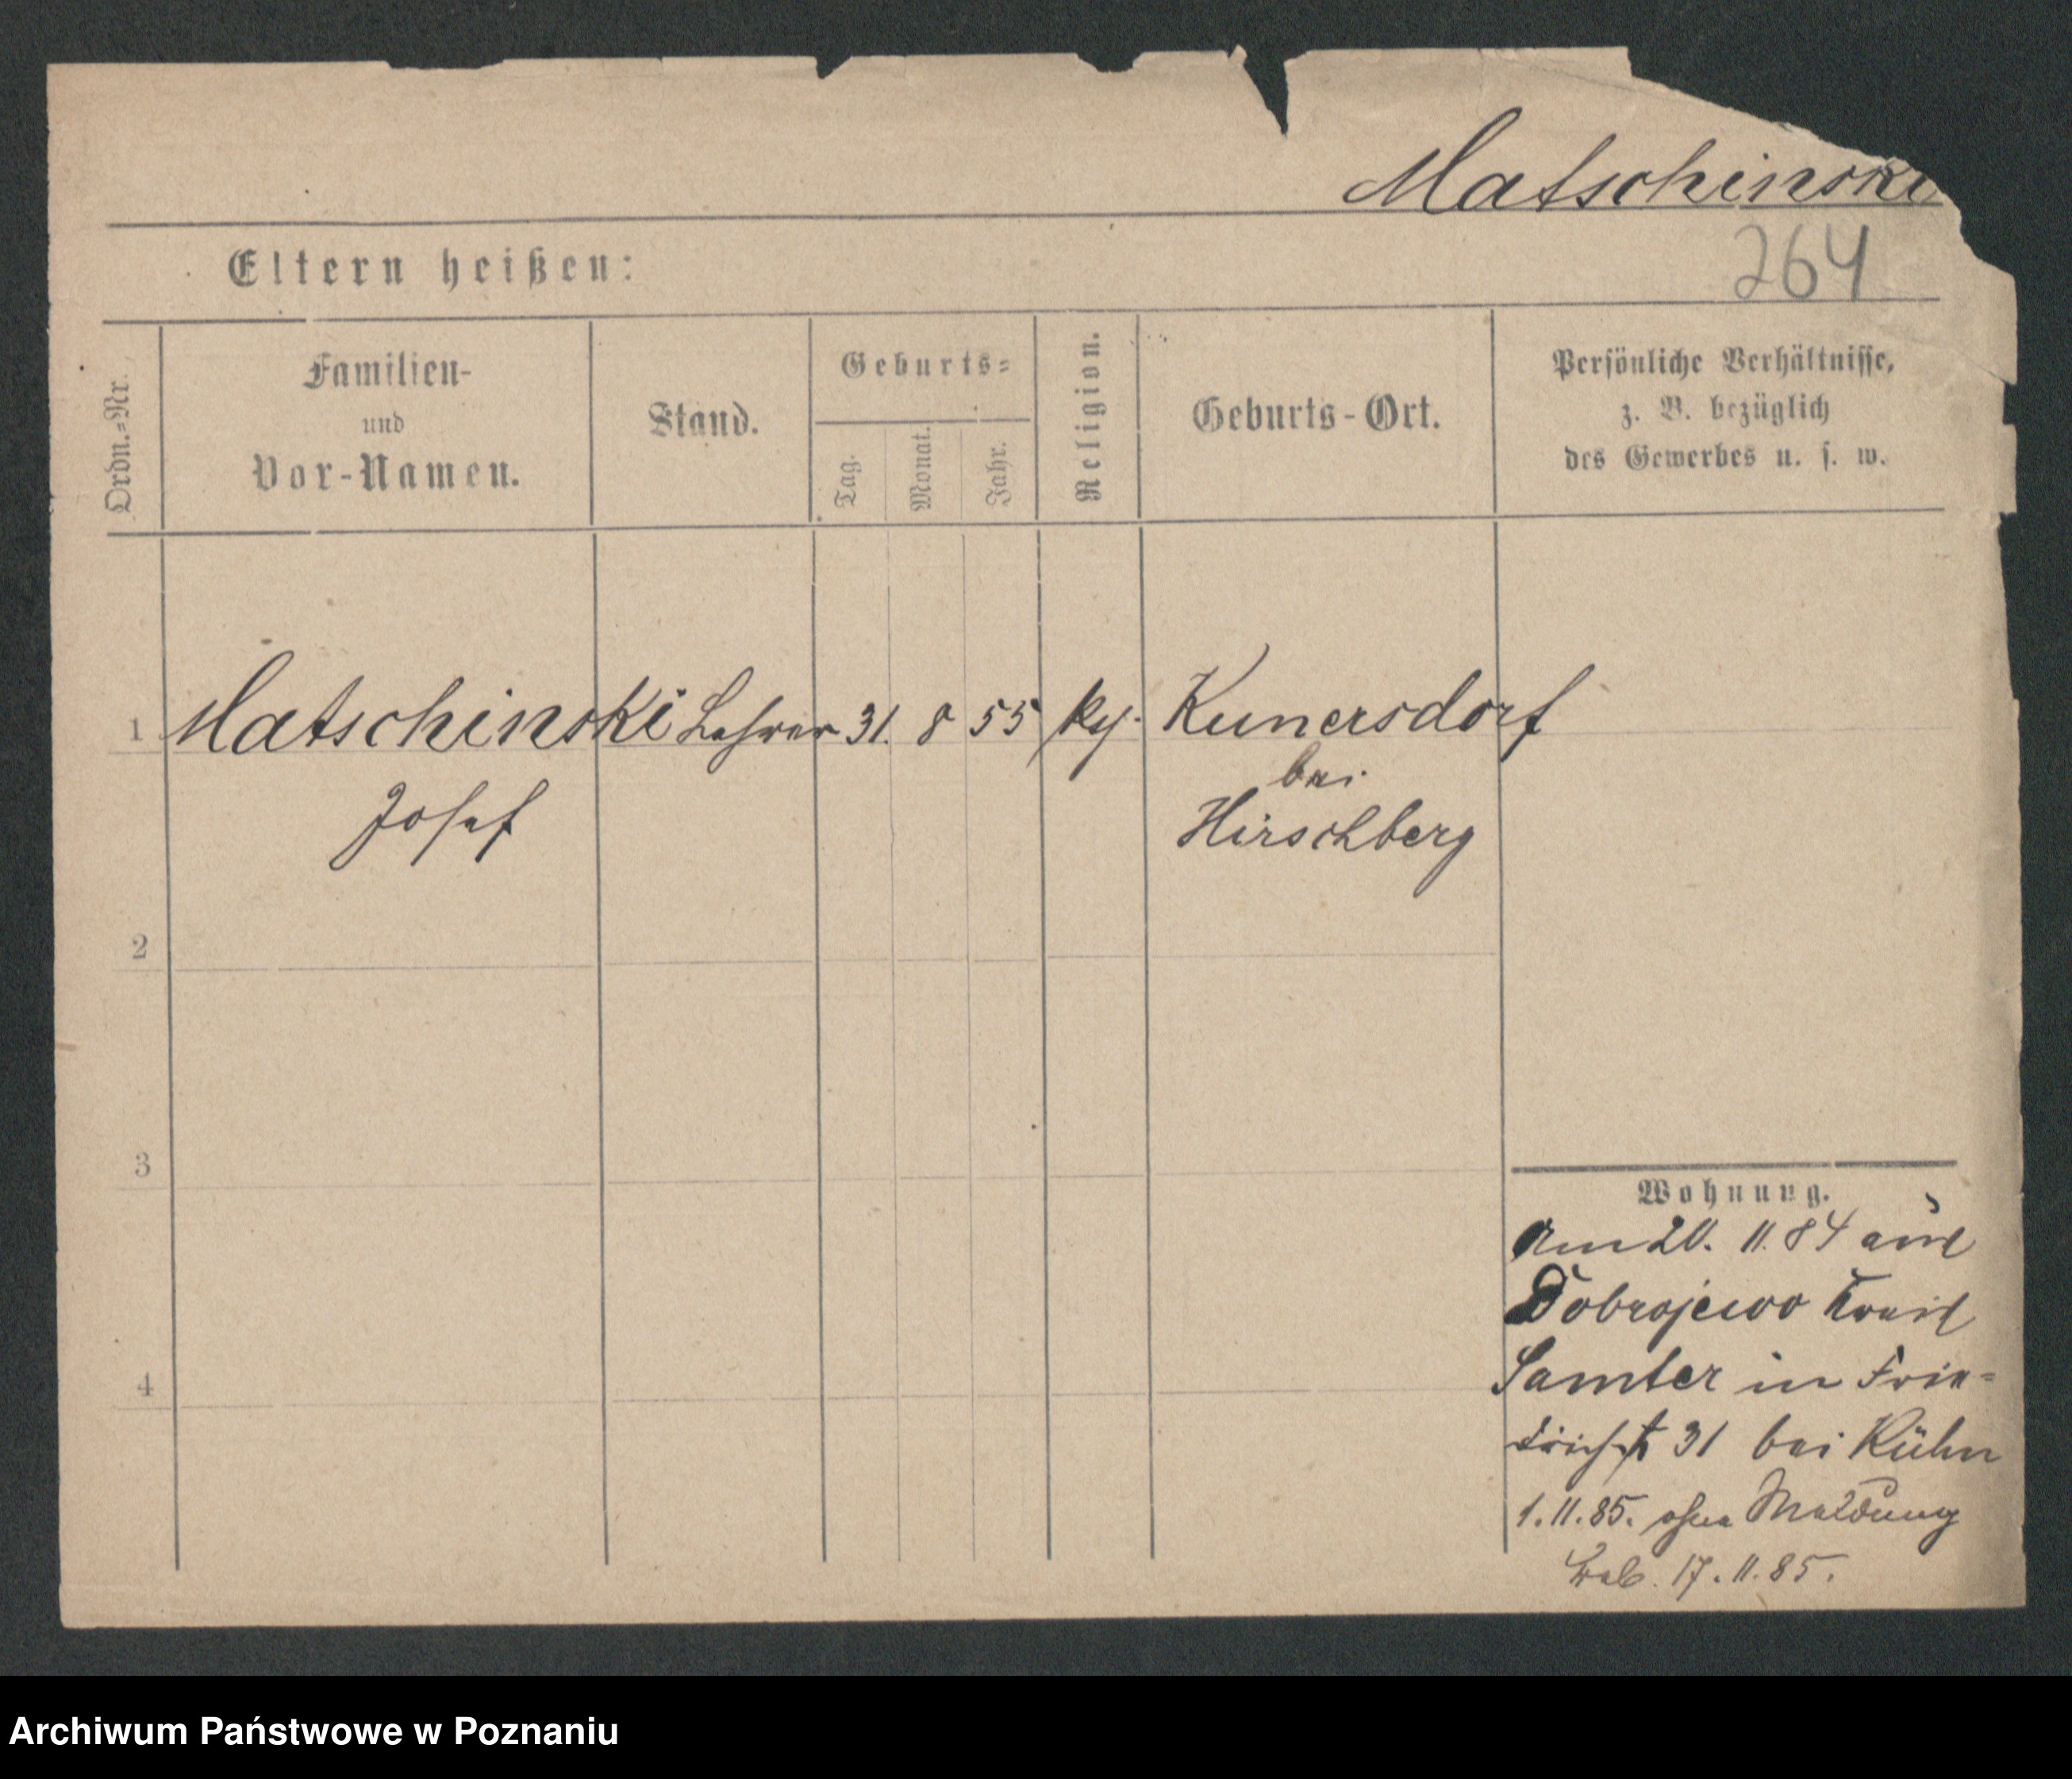 Matschinski
264
Eltern heißen:
Ordn.-Nr.
Familien-
und
Vor-Namen.
Stand.
Geburts-
Tag.
Monat.
Jahr.
Religion.
Geburts-Ort.
Persönliche Verhältnisse,
z. B. bezüglich
des Gewerbes u. s. w.
1 Matschinski Lehrer 31. 8 55 Kunersdorf
bei
Josef Hirschberg
2
3
4
Wohnung.
Am 20. 11. 84 aus
Dobrojewo Kreis
Samter in Frie-
drichst 31 bei Kühn
1. 11. 85. ohne Meldung
17. 11. 85.
Archiwum Państwowe w Poznaniu